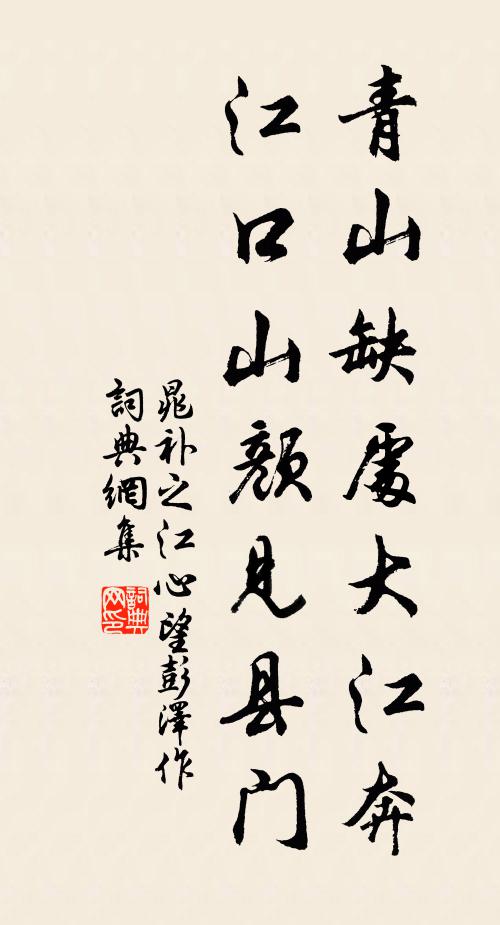 青山缺處大江奔
江口山颜見县门
晁补之江心望彭澤作
詞典網集
詞典网印